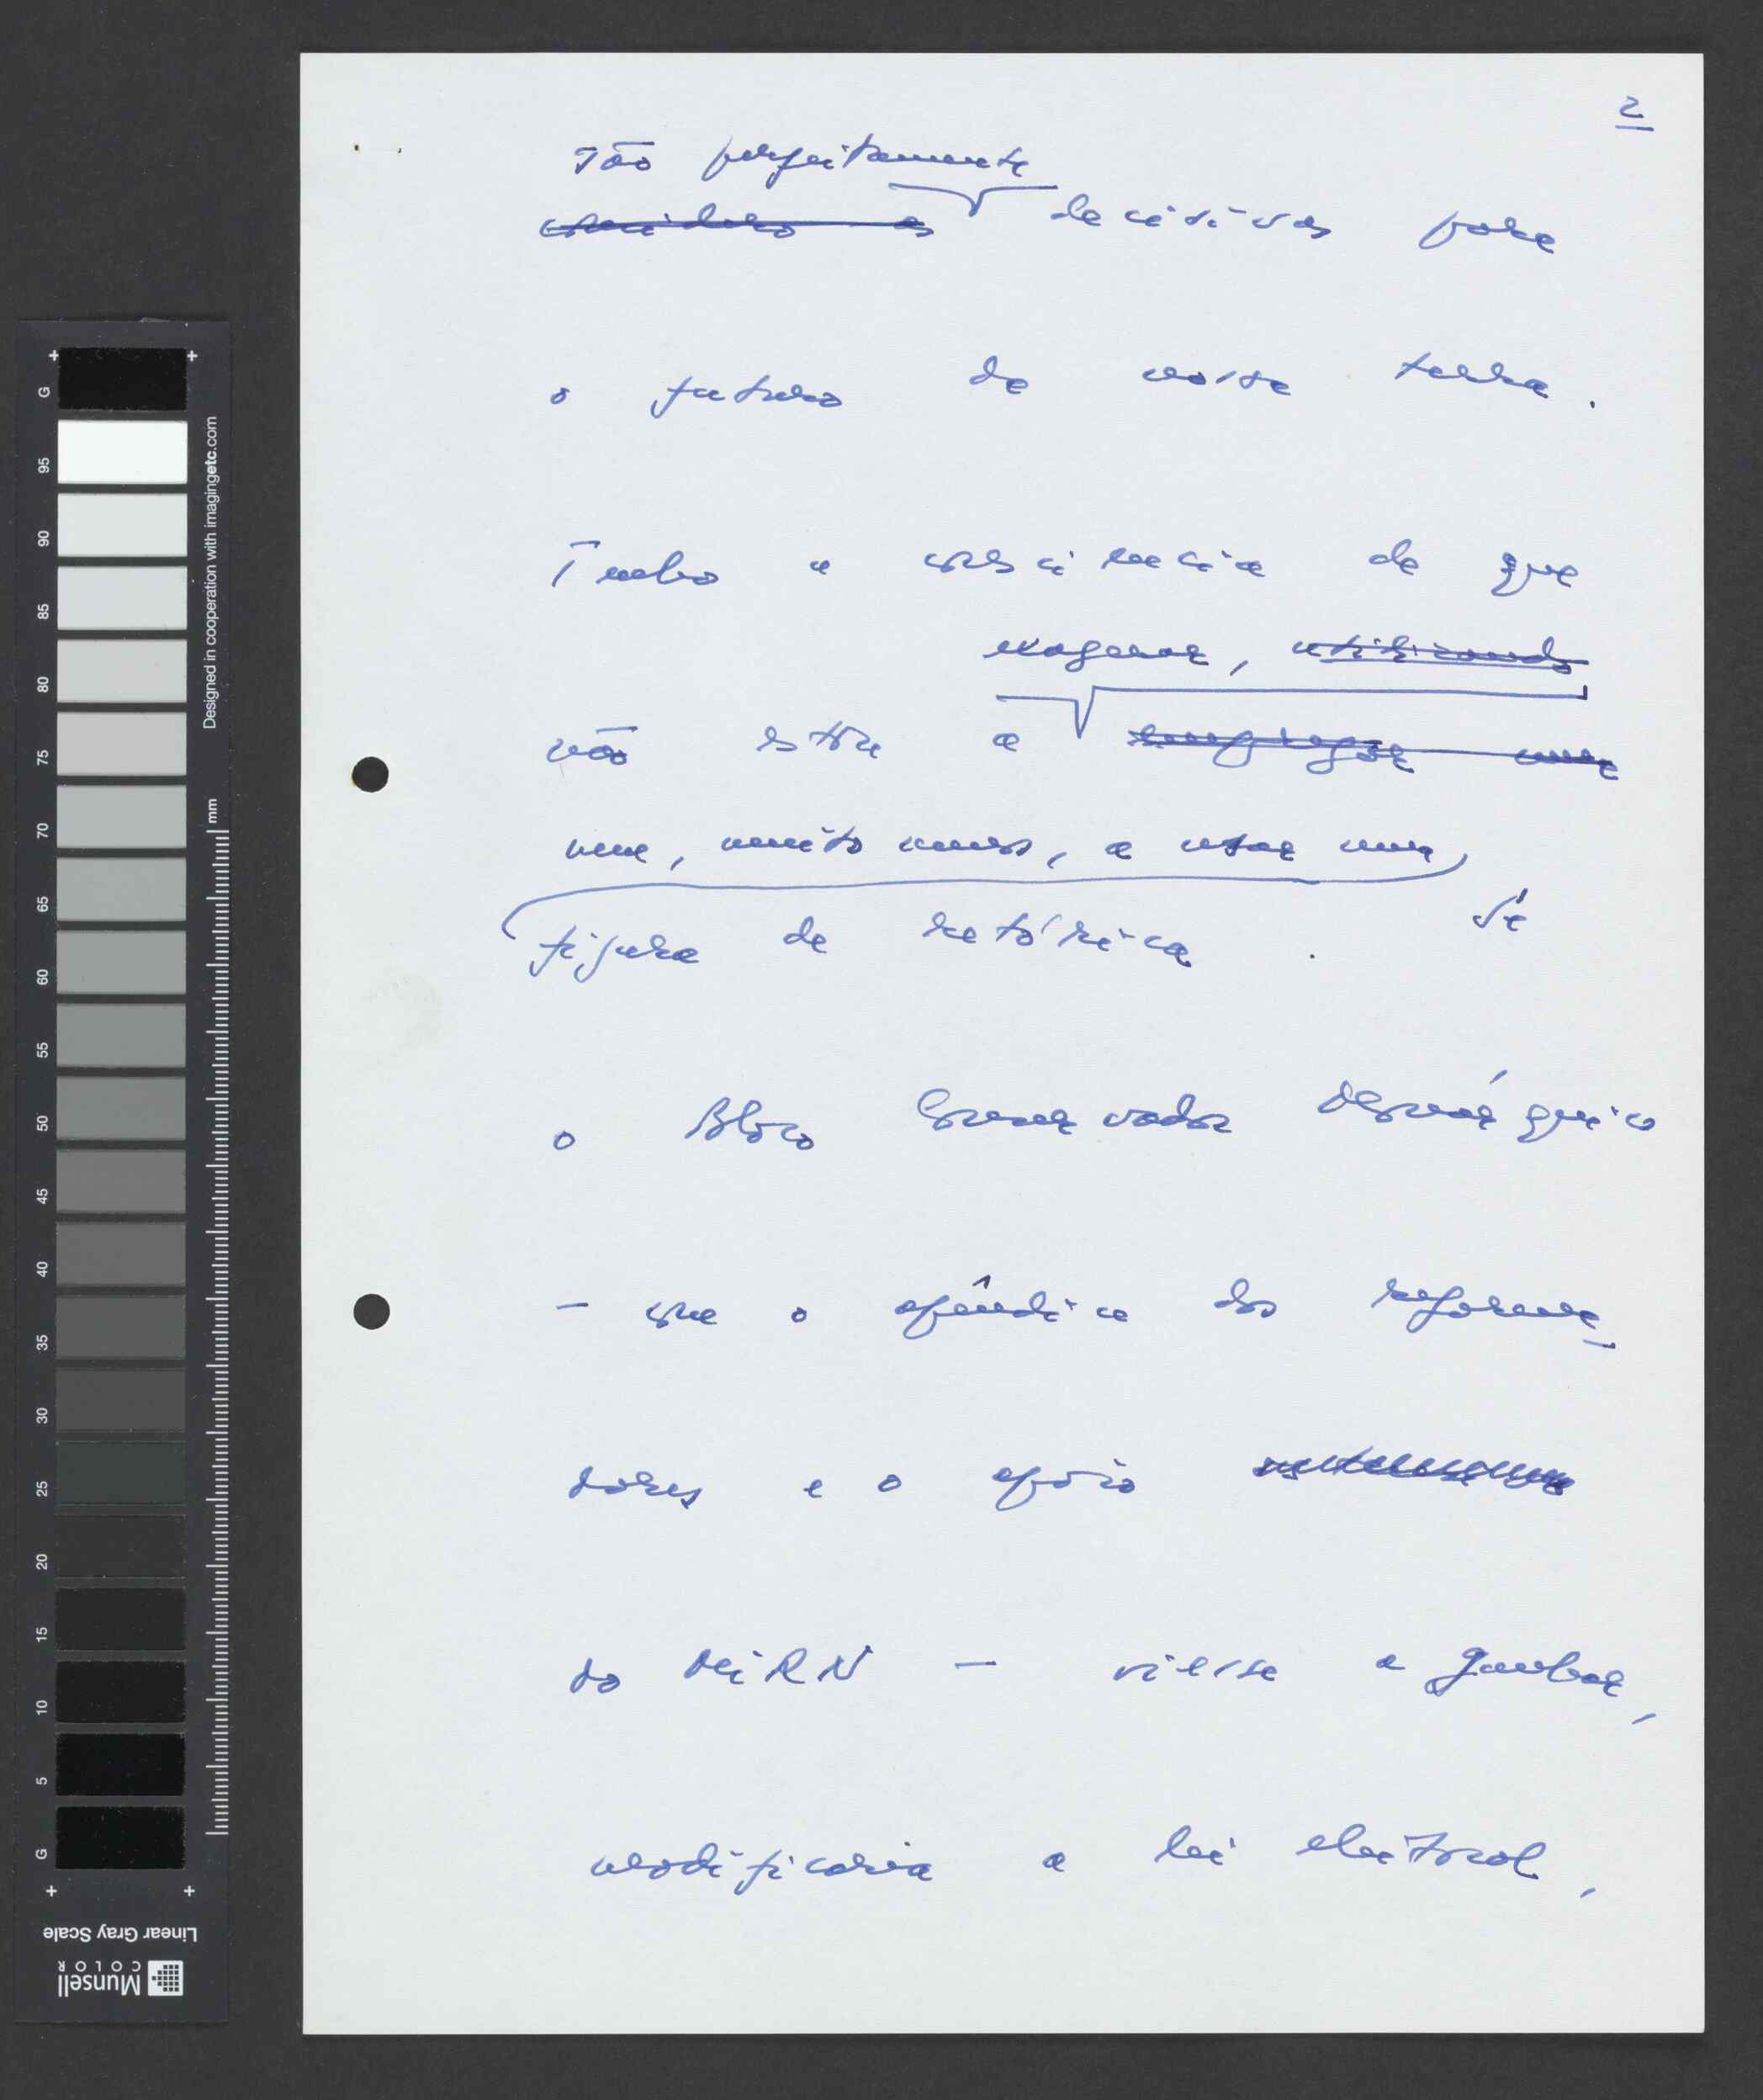 2
são perfeitamente
considero as decisivas para
o futuro da nossa terra.
Tenho a consciência de que
exagerar, utilizando
não estou a empregar uma
nem, muito menos, a usar uma
figura de retórica. Se
o Bloco Conservador Monárquico
- com o apêndice dos reforma_
dores e o apoio
do MiRN - viesse a ganhar,
modificaria a lei eleitoral,
G
95
90
85
80
75
70
65
60
55
50
45
40
35
30
25
20
15
10
5
G
Designed in cooperation with imagingetc.com
mm
Linear Gray Scale
Munsell
COLOR